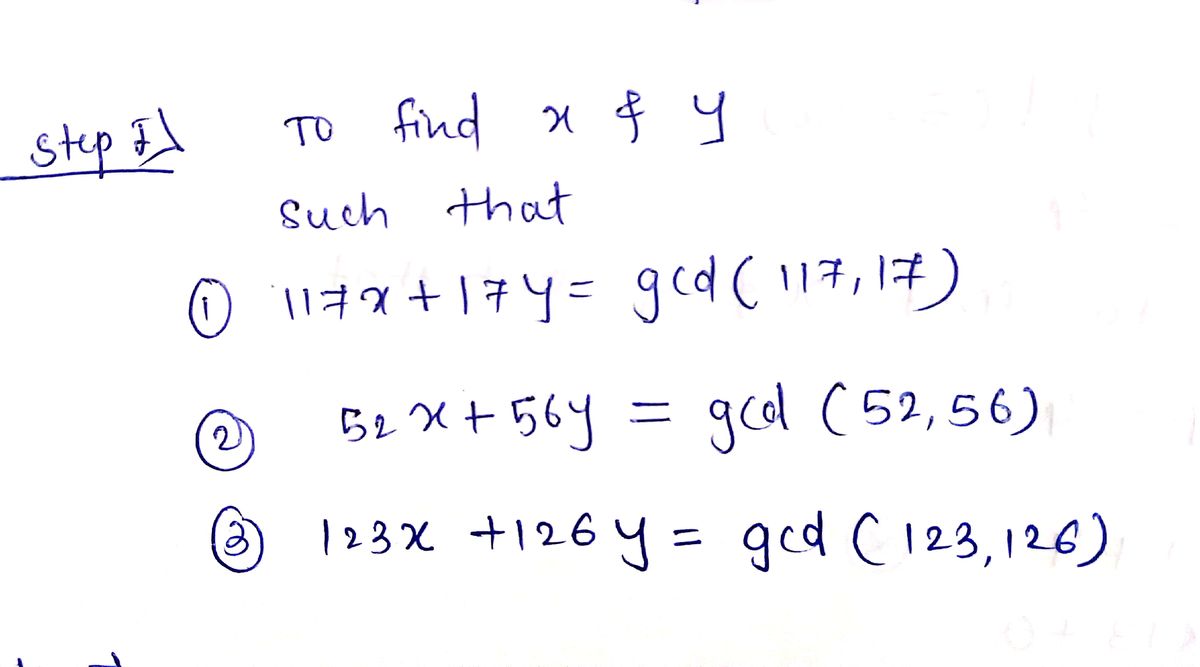 Step I) To find x & y
such that
① 117x + 17y = gcd ( 117, 17 )
② 52x + 56y = gcd ( 52, 56 )
③ 123x + 126y = gcd ( 123, 126 )